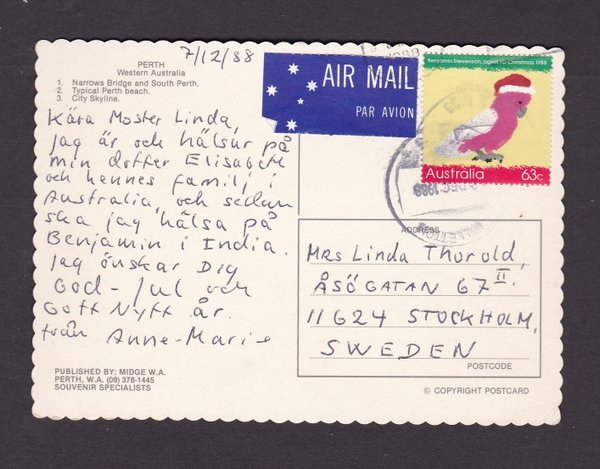 7/12/88
PERTH
Western Australia
1. Narrows Bridge and South Perth.
2. Typical Perth beach.
3. City Skyline.
Kära Moster Linda,
Jag är och hälsar på
min dotter Elisabeth
och hennes familj i
Australia, och sedan
ska jag hälsa på
Benjamin i India.
Jag önskar Dig
God-Jul och
Gott Nytt År.
från Anne-Marie
PUBLISHED BY: MIDGE W.A.
PERTH, W.A. (09) 378-1445
SOUVENIR SPECIALISTS
AIR MAIL
PAR AVION
Benjamin Stevenson, aged 10 Christmas 1988
Australia 63c
DEC 1988
ADDRESS
Mrs Linda Thorold,
ÅSÖGATAN 67 II
11624 STOCKHOLM,
SWEDEN
POSTCODE
© COPYRIGHT POSTCARD